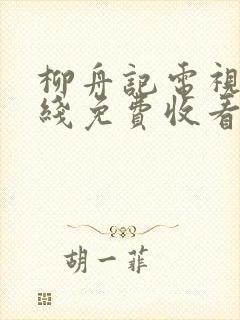 柳舟記電視
綫免費收看
胡一菲